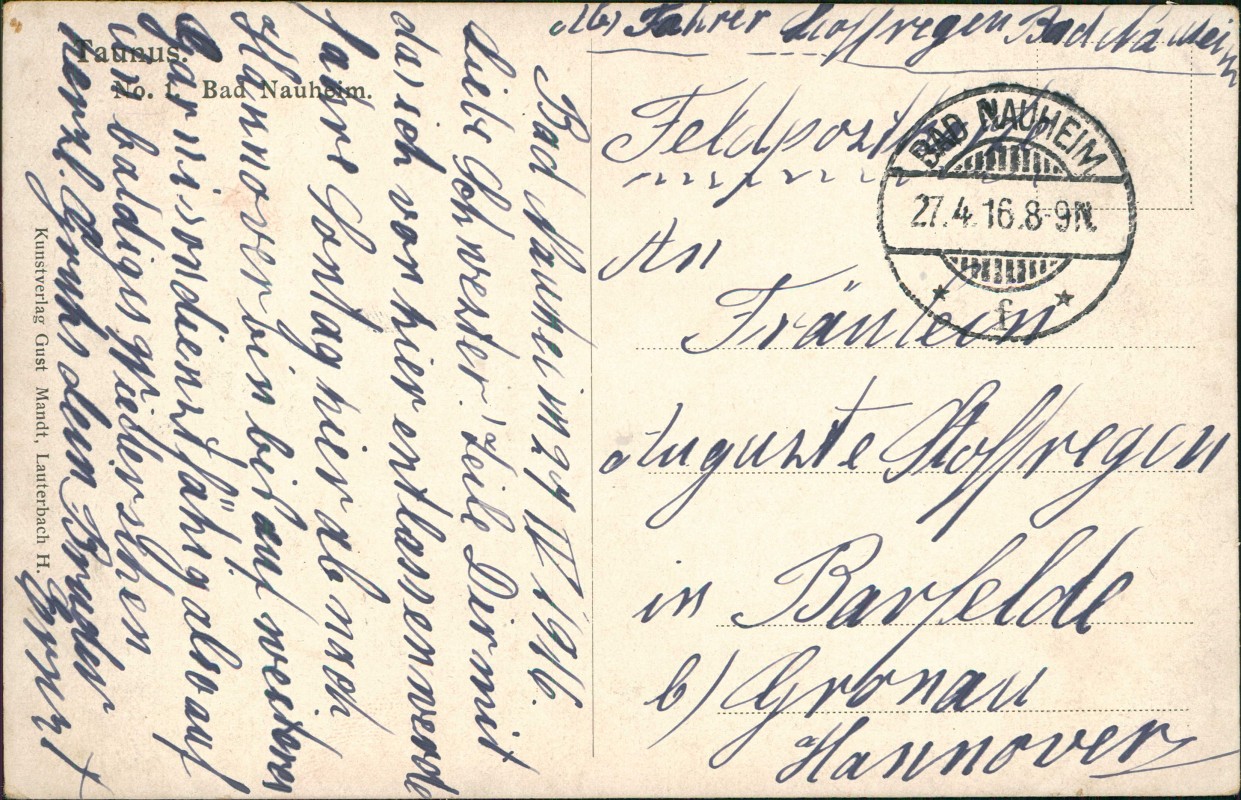 Taunus.
No. 1. Bad Nauheim.
Kunstverlag Gust Mandt, Lauterbach H.
Bad Nauheim 27 IV 1916.
Liebe Schwester! Teile Dir mit
das ich von hier entlassen werde
fahre Sontag hier ab nach
Hannover bin bis auf weiteres
Garnisondienstfähig also auf
ein baldiges Wiedersehen
herzl. Gruß dein Bruder
Ernst
Abs Fahrer Stoffregen Bad Nauheim
Feldpost
BAD NAUHEIM
27.4.16.8-9N.
* f *
An
Fräulein
Auguste Stoffregen
in Barfelde
b) Gronau
Hannover